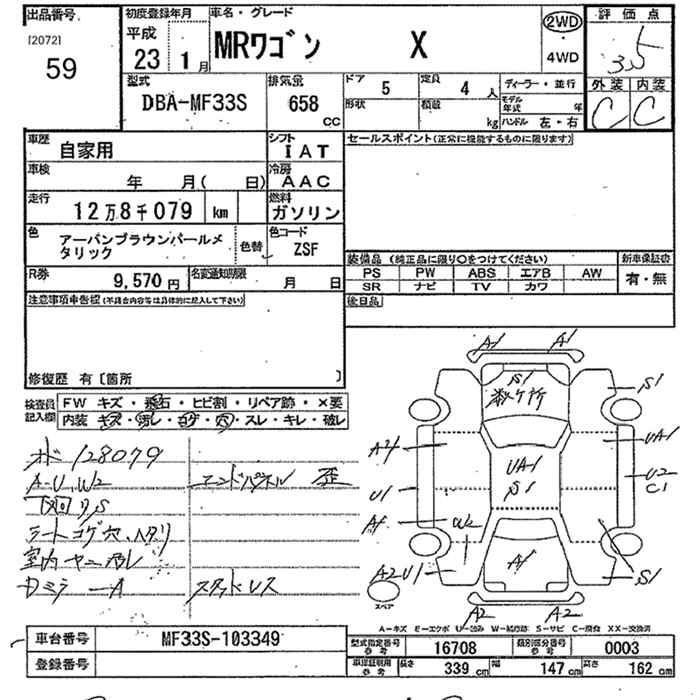 出品番号
[2072]
59
初度登録年月
平成
23 1月
車名・グレード
MRワゴン X
2WD
4WD
評価点
3.5
外装 内装
C C
型式
DBA-MF33S
排気量
658
CC
ドア 5
定員 4 人
ディーラー・並行
形状
積載 kg
モデル年式 年
ハンドル 左・右
車歴
自家用
シフト
IAT
セールスポイント(正常に機能するものに限ります)
車検
年 月( 日)
冷房
AAC
走行
12万8千079 km
燃料
ガソリン
色
アーバンブラウンパールメタリック
色替
色コード
ZSF
装備品 (純正品に限り○をつけてください)
新車保証書
PS PW ABS エアB AW
SR ナビ TV カワ
有・無
R券
9,570円
名変通知期限
月 日
後日品
注意事項申告欄(不具合内容等は具体的に記入して下さい)
修復歴 有〔箇所 〕
検査員記入欄
FW キズ・飛石・ヒビ割・リペア跡・×要
内装 キズ・汚レ・コゲ・穴・スレ・キレ・破レ
メ 128079
A-U,W2
エンドパネル 歪
下廻り,S
シートコゲ穴、ヘタリ
室内ヤニ汚レ
Dミラ ーA
スタッドレス
A1 A1
S1
数ヶ所
S1
A4
UA1
UA1
S1
U1
U2
C1
W2
A1
A2U1
S1
スペア
A2 A2
A-キズ E-エクボ U-凹み W-補修跡 S-サビ C-腐食 XX-交換済
車台番号
MF33S-103349
登録番号
型式指定番号
参考
16708
類別区分番号
参考
0003
車庫証明用
参考
長さ 339 cm
幅 147 cm
高さ 162 cm